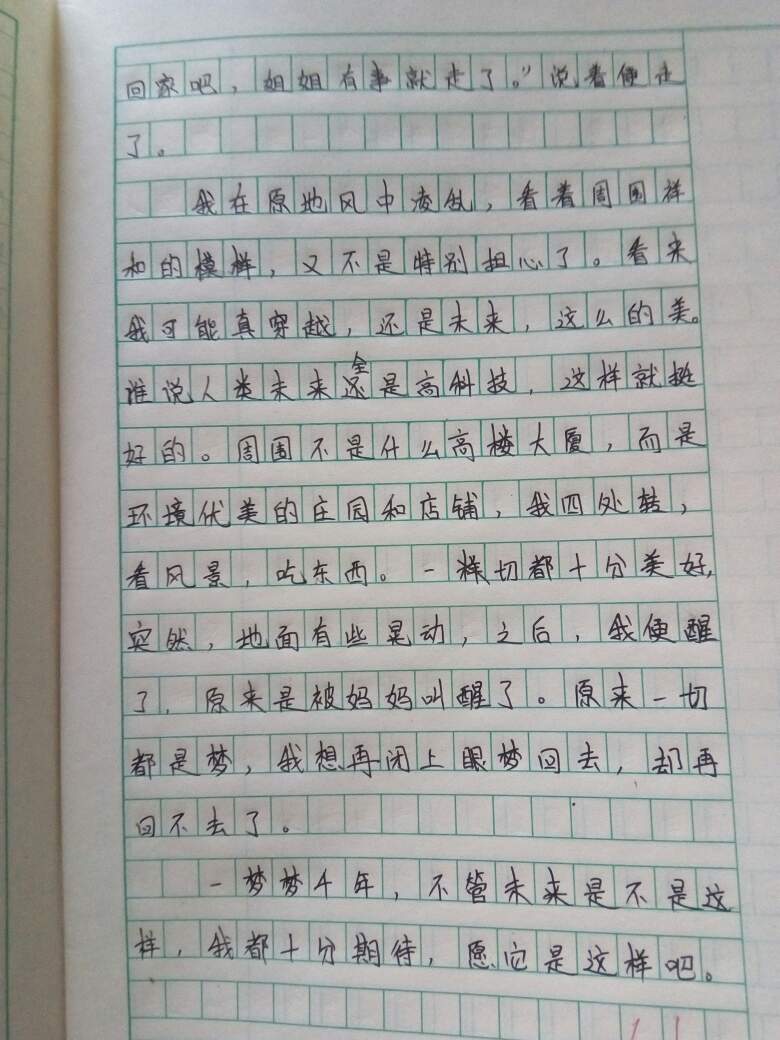 回家吧，姐姐有事就走了。”说着便走
了。
我在原地风中凌乱，看着周围祥
和的模样，又不是特别担心了。看来
我可能真穿越，还是未来，这么的美。
谁说人类未来全还是高科技，这样就挺
好的。周围不是什么高楼大厦，而是
环境优美的庄园和店铺，我四处转，
看风景，吃东西。一样切都十分美好，
突然，地面有些晃动，之后，我便醒
了，原来是被妈妈叫醒了。原来一切
都是梦，我想再闭上眼梦回去，却再
回不去了。
一梦梦千年，不管未来是不是这
样，我都十分期待，愿它是这样吧。